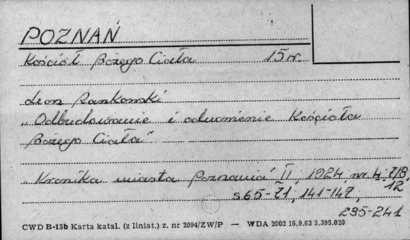 POZNAŃ
Kościół Bożego Ciała 15 w.
Leon Rankowski
"Odbudowanie i odnowienie Kościoła
Bożego Ciała"
"Kronika miasta Poznania" II, 1924 nr 4, 7/8,
12
s 65-71, 141-147,
235-241
CWD B-15b Karta katal. (z liniat.) z. nr 2094/ZW/P — WDA 2002 16.9.63 3.395.020